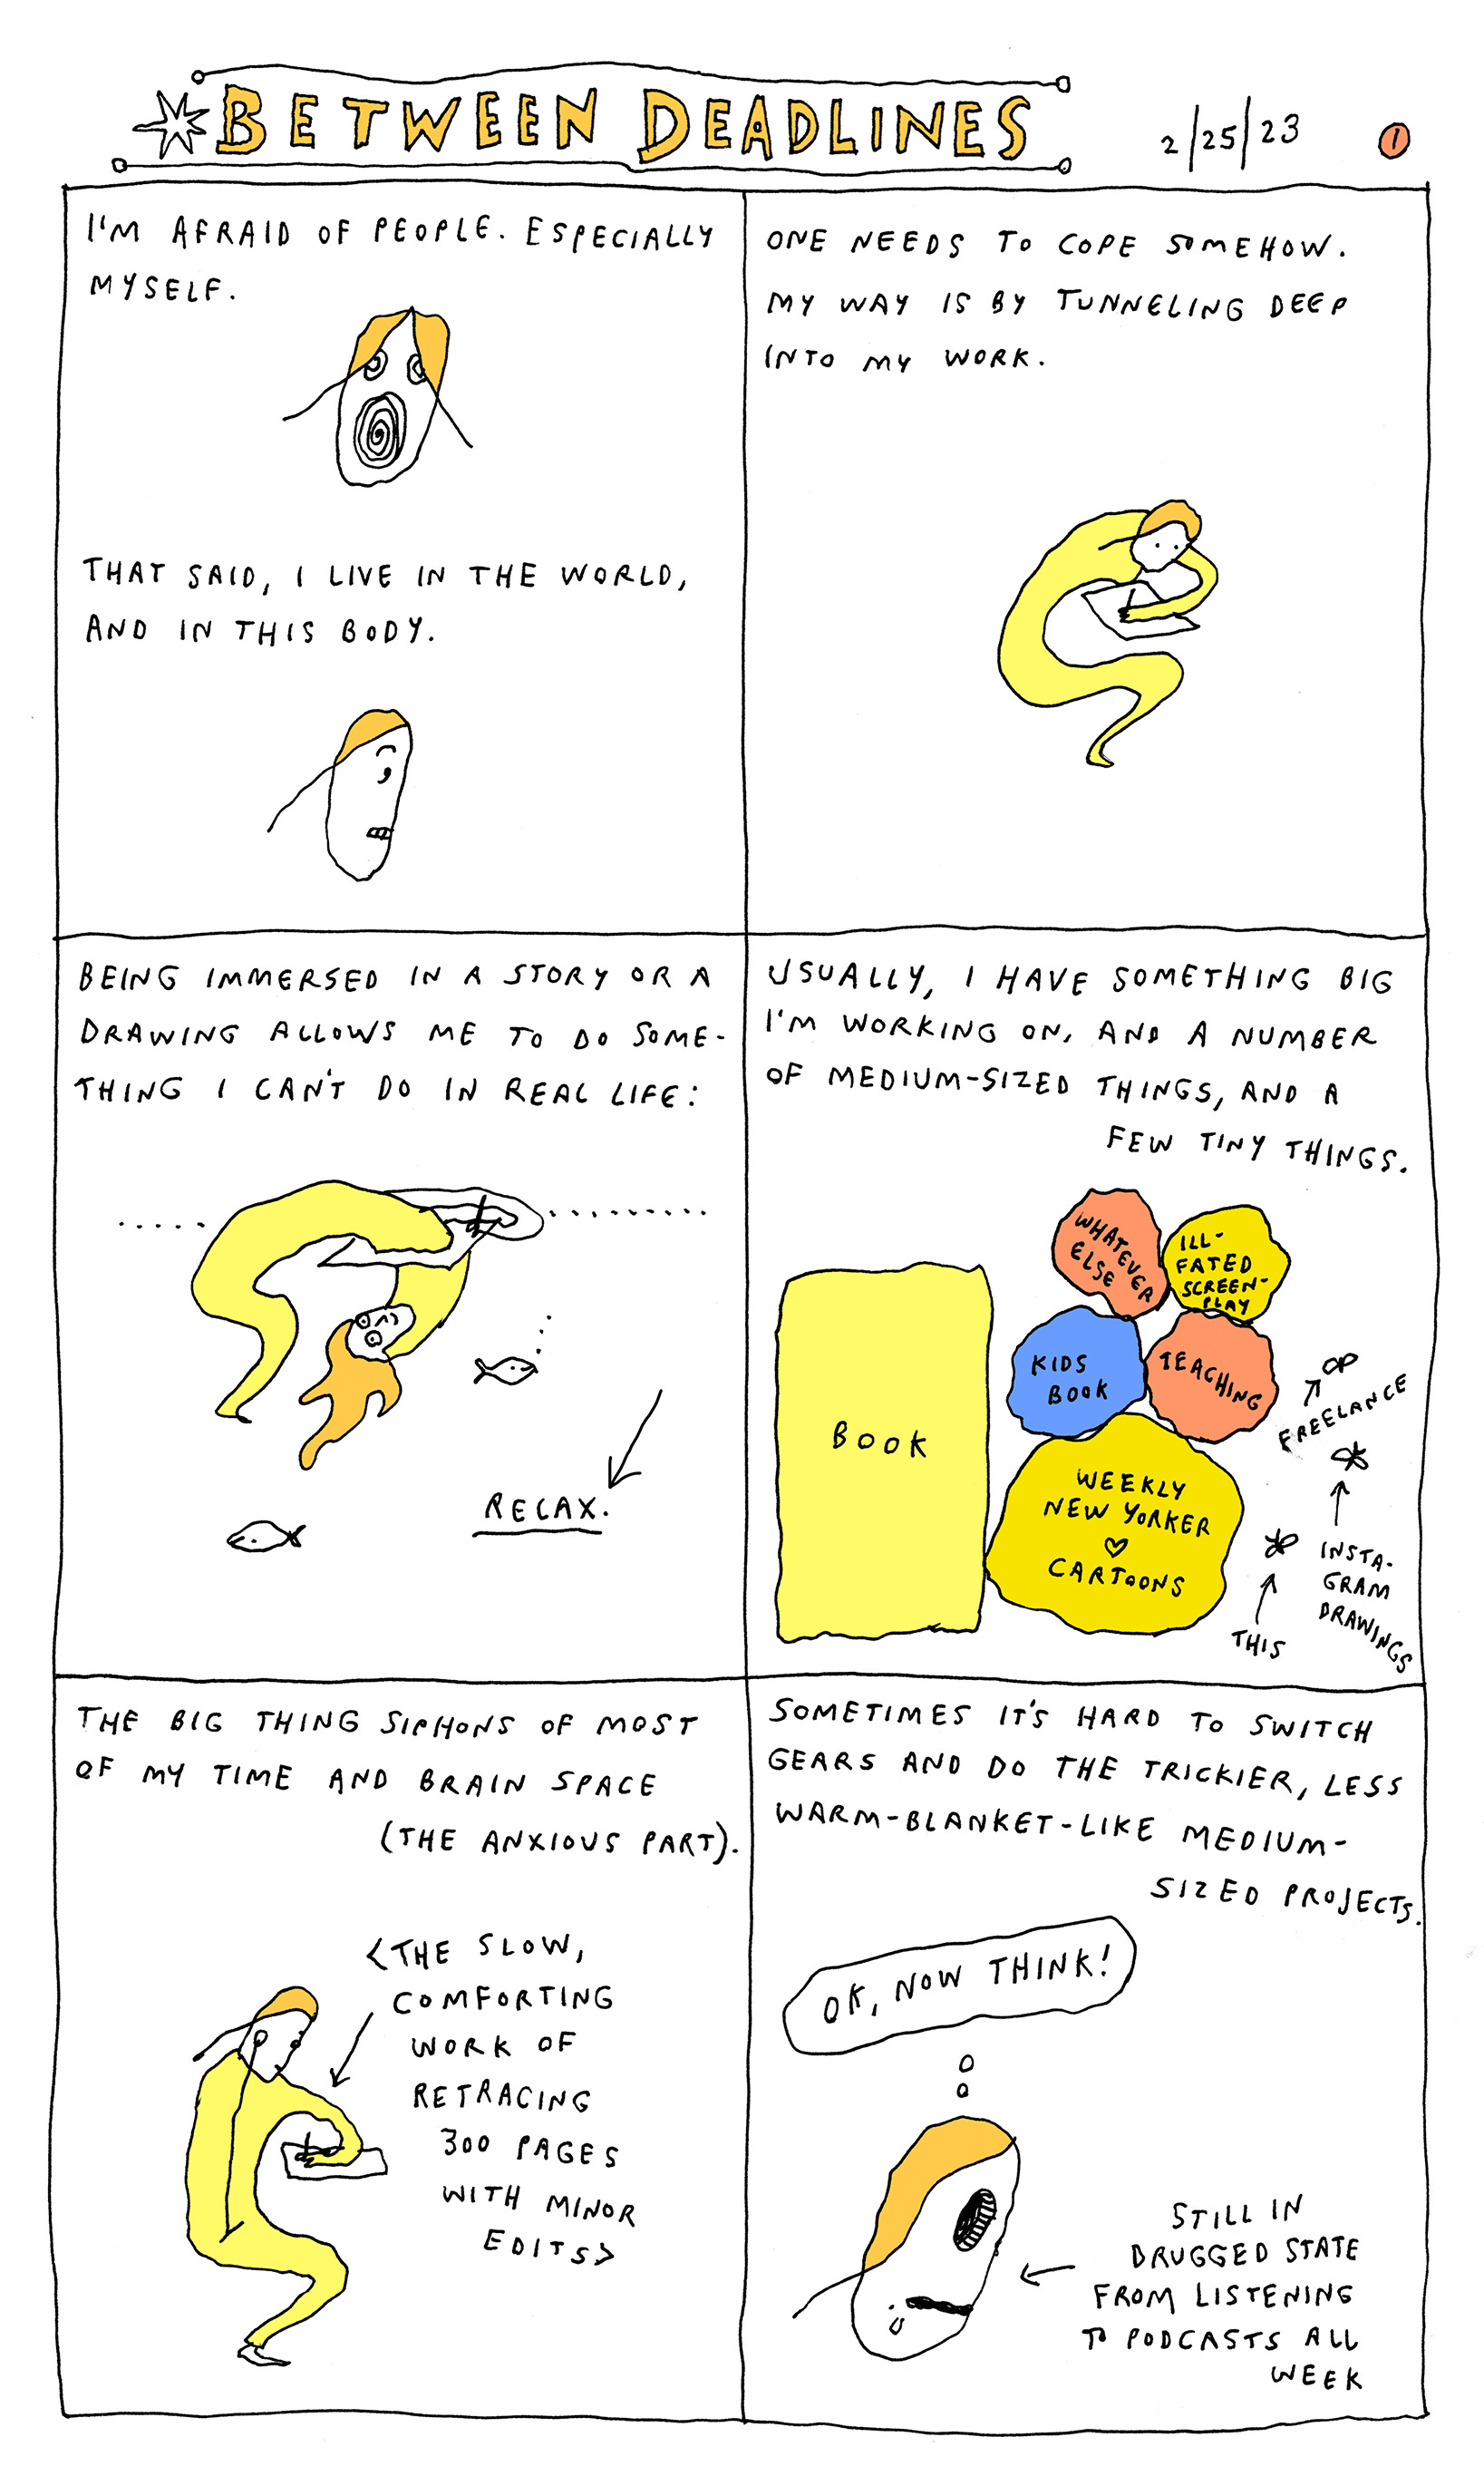 BETWEEN DEADLINES
2/25/23
1
I'M AFRAID OF PEOPLE. ESPECIALLY
MYSELF.
THAT SAID, I LIVE IN THE WORLD,
AND IN THIS BODY.
ONE NEEDS TO COPE SOMEHOW.
MY WAY IS BY TUNNELING DEEP
INTO MY WORK.
BEING IMMERSED IN A STORY OR A
DRAWING ALLOWS ME TO DO SOME-
THING I CAN'T DO IN REAL LIFE:
RELAX.
USUALLY, I HAVE SOMETHING BIG
I'M WORKING ON, AND A NUMBER
OF MEDIUM-SIZED THINGS, AND A
FEW TINY THINGS.
BOOK
WHATEVER
ELSE
ILL-
FATED
SCREEN-
PLAY
KIDS
BOOK
TEACHING
WEEKLY
NEW YORKER
♡
CARTOONS
FREELANCE
INSTA-
GRAM
DRAWINGS
THIS
THE BIG THING SIPHONS OF MOST
OF MY TIME AND BRAIN SPACE
(THE ANXIOUS PART).
<THE SLOW,
COMFORTING
WORK OF
RETRACING
300 PAGES
WITH MINOR
EDITS>
SOMETIMES IT'S HARD TO SWITCH
GEARS AND DO THE TRICKIER, LESS
WARM-BLANKET-LIKE MEDIUM-
SIZED PROJECTS.
OK, NOW THINK!
STILL IN
DRUGGED STATE
FROM LISTENING
TO PODCASTS ALL
WEEK